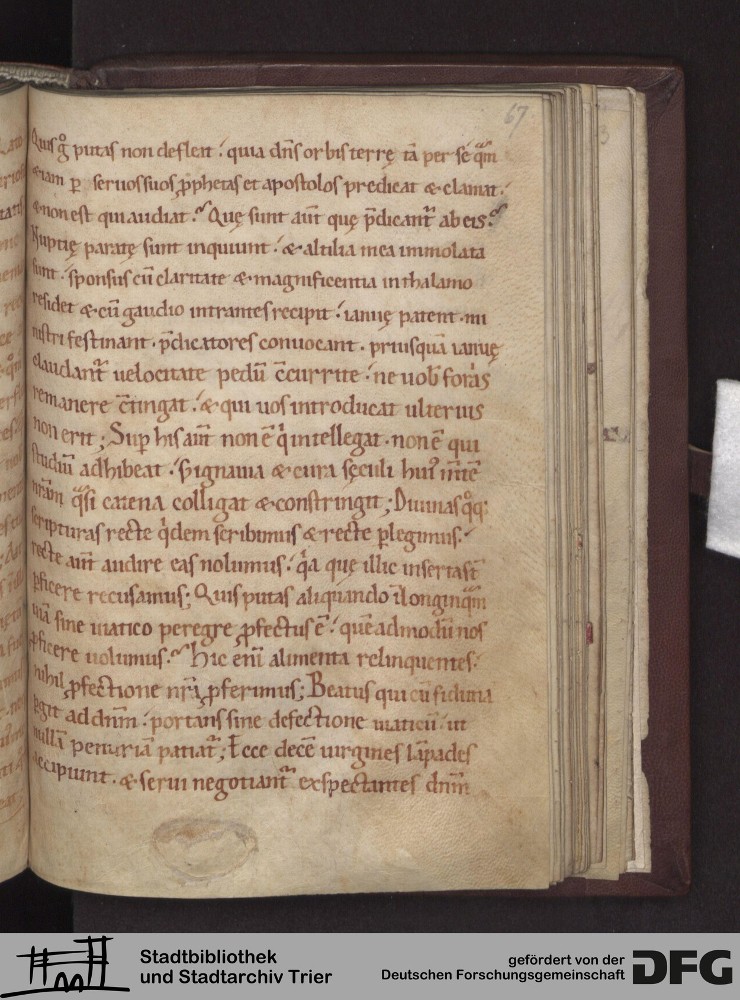 67
Quis g̊ putas non defleat. quia dn̄s orbis terrę tā per se quā
&iam p̱ seruos suos ꝓphetas et apostolos predicat & clamat.
& non est qui audiat. Quę sunt aut̄ quę p̄dicant᷑ ab eis.
Nuptię paratę sunt inquiunt. & altilia mea immolata
sunt. sponsus cū claritate & magnificentia in thalamo
residet & cū gaudio intrantes recipit. ianuę patent. mi
nistri festinant. p̄dicatores conuocant. priusquā ianuę
claudant᷑ uelocitate pedū c̄currite. ne uob̄ foras
remanere c̄tingat. & qui uos introducat ulterius
non erit; Sup his aut̄ non ē qi intellegat. non ē qui
studiū adhibeat. S; ignauia & cura sęculi hui᷒ m̄tē
nr̄am qͣsi catena colligat & constringit; Diuinas qͦq;
scripturas recte qͥdem scribimus & recte ꝑlegimus.
recte aut̄ audire eas nolumus. qͥa quę illic inserta st̄
ꝑficere recusamus; Quis putas aliquando ī longinquā
uiā sine uiatico peregre ꝓfectus ē. quēadmodū nos
ꝓficere uolumus. Hic enī alimenta relinquentes.
nihil ꝓfectione nr̄a ꝓferimus; Beatus qui cū fiducia
pergit ad dn̄m. portans sine defectione uiaticū. ut
nullā penuriā patiat᷑; Ecce decē uirgines lāpades
accipiunt. & serui negotiant᷑ exspectantes dn̄m
Stadtbibliothek
und Stadtarchiv Trier
gefördert von der
Deutschen Forschungsgemeinschaft
DFG